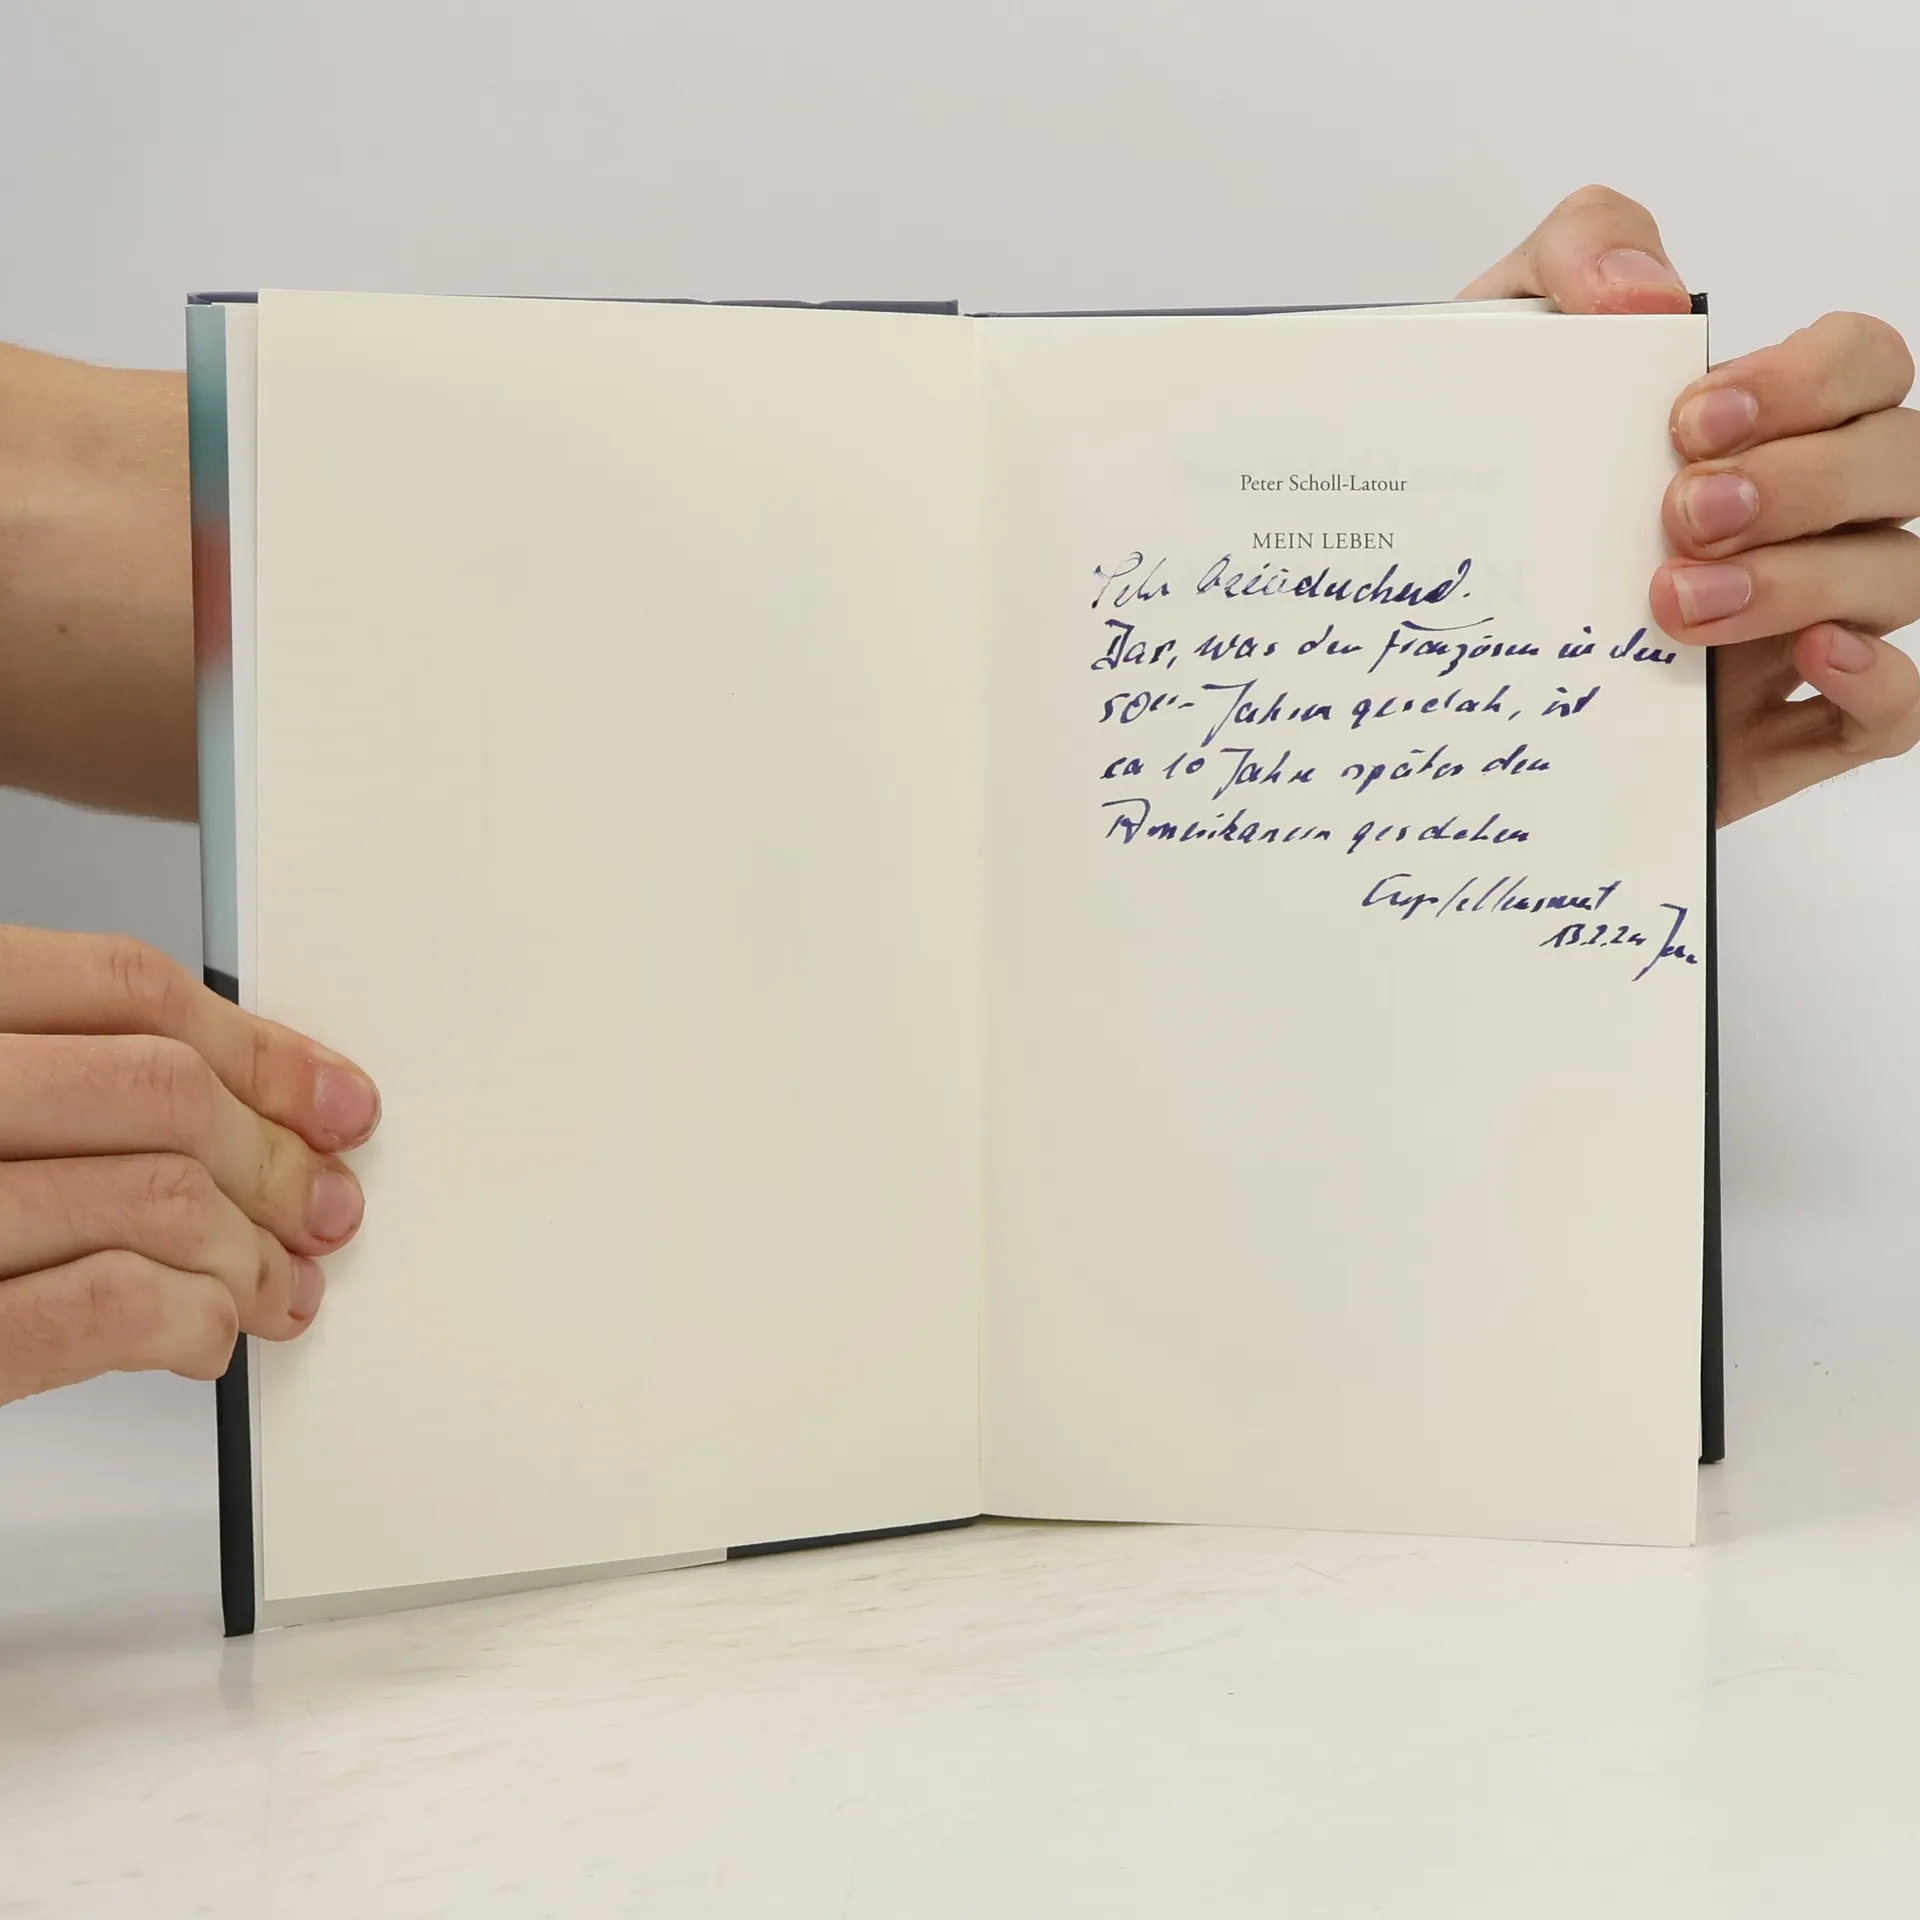 Peter Scholl-Latour
MEIN LEBEN
Sehr beeindruckend.
Das, was den Franzosen in den
50er-Jahren geschah, ist
ca 10 Jahre später den
Amerikanern geschehen
13.2.2